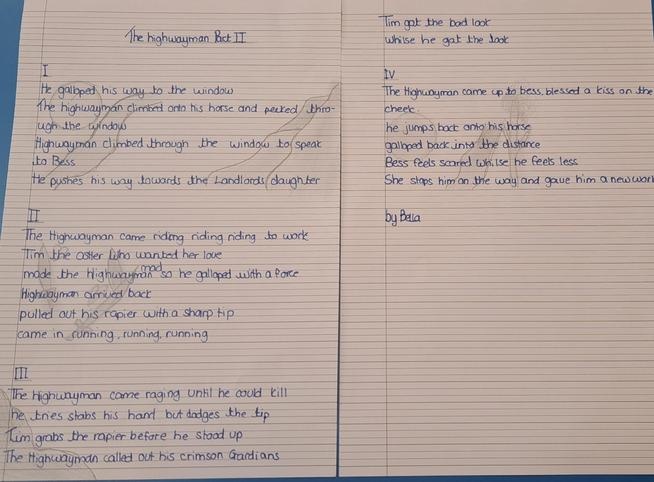 The highwayman Part II
I
He galloped his way to the window
The highwayman climbed onto his horse and peeked thro-
ugh the window
Highwayman climbed through the window to speak
to Bess
He pushes his way towards the Landlords daughter
II
The Highwayman came riding riding riding to work
Tim the ostler who wanted her love
made the Highwayman mad so he galloped with a force
Highwayman arrived back
pulled out his rapier with a sharp tip
came in running, running, running
III
The Highwayman came raging until he could kill
he tries stabs his hand but dodges the tip
Tim grabs the rapier before he stood up
The Highwayman called out his crimson Gardians
Tim got the bad look
whilse he got the look
IV
The Highwayman came up to bess, blessed a kiss on the
cheek.
he jumps back onto his horse
galloped back into the distance
Bess feels scared whilse he feels less
She stops him on the way and gave him a new work
by Bella